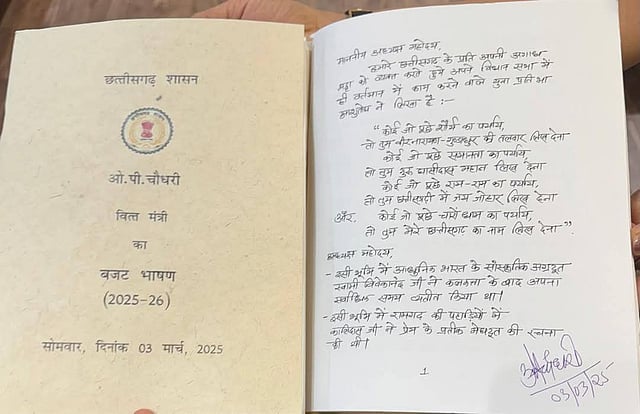 छत्तीसगढ़ शासन
ओ.पी.चौधरी
वित्त मंत्री
का
बजट भाषण
(2025-26)
सोमवार, दिनांक 03 मार्च, 2025
माननीय अध्यक्ष महोदय,
हमारे छत्तीसगढ़ के प्रति अपनी अगाध
श्रद्धा को व्यक्त करते हुये अपने विधान सभा में
ही वर्तमान में काम करने वाले युवा प्रतिभा
ने लिखा है :-
"कोई जो पूछे शौर्य का पर्याय,
तो तुम वीरनारायण-गुण्डाधुर की तलवार लिख देना
कोई जो पूछे समानता का पर्याय,
तो तुम गुरु घासीदास महान लिख देना
कोई जो पूछे राम-राम का पर्याय,
तो तुम छत्तीसगढ़ी में जय जोहार लिख देना
और कोई जो पूछे चारों धाम का पर्याय,
तो तुम मेरे छत्तीसगढ़ का नाम लिख देना".
अध्यक्ष महोदय,
- इसी भूमि में आधुनिक भारत के सांस्कृतिक अग्रदूत
स्वामी विवेकानंद जी ने कलकत्ता के बाद अपना
सर्वाधिक समय व्यतीत किया था।
- इसी भूमि में रामगढ़ की पहाड़ियों में
कालिदास जी ने प्रेम के प्रतीक मेघदूत की रचना
की थी।
1
03/03/25